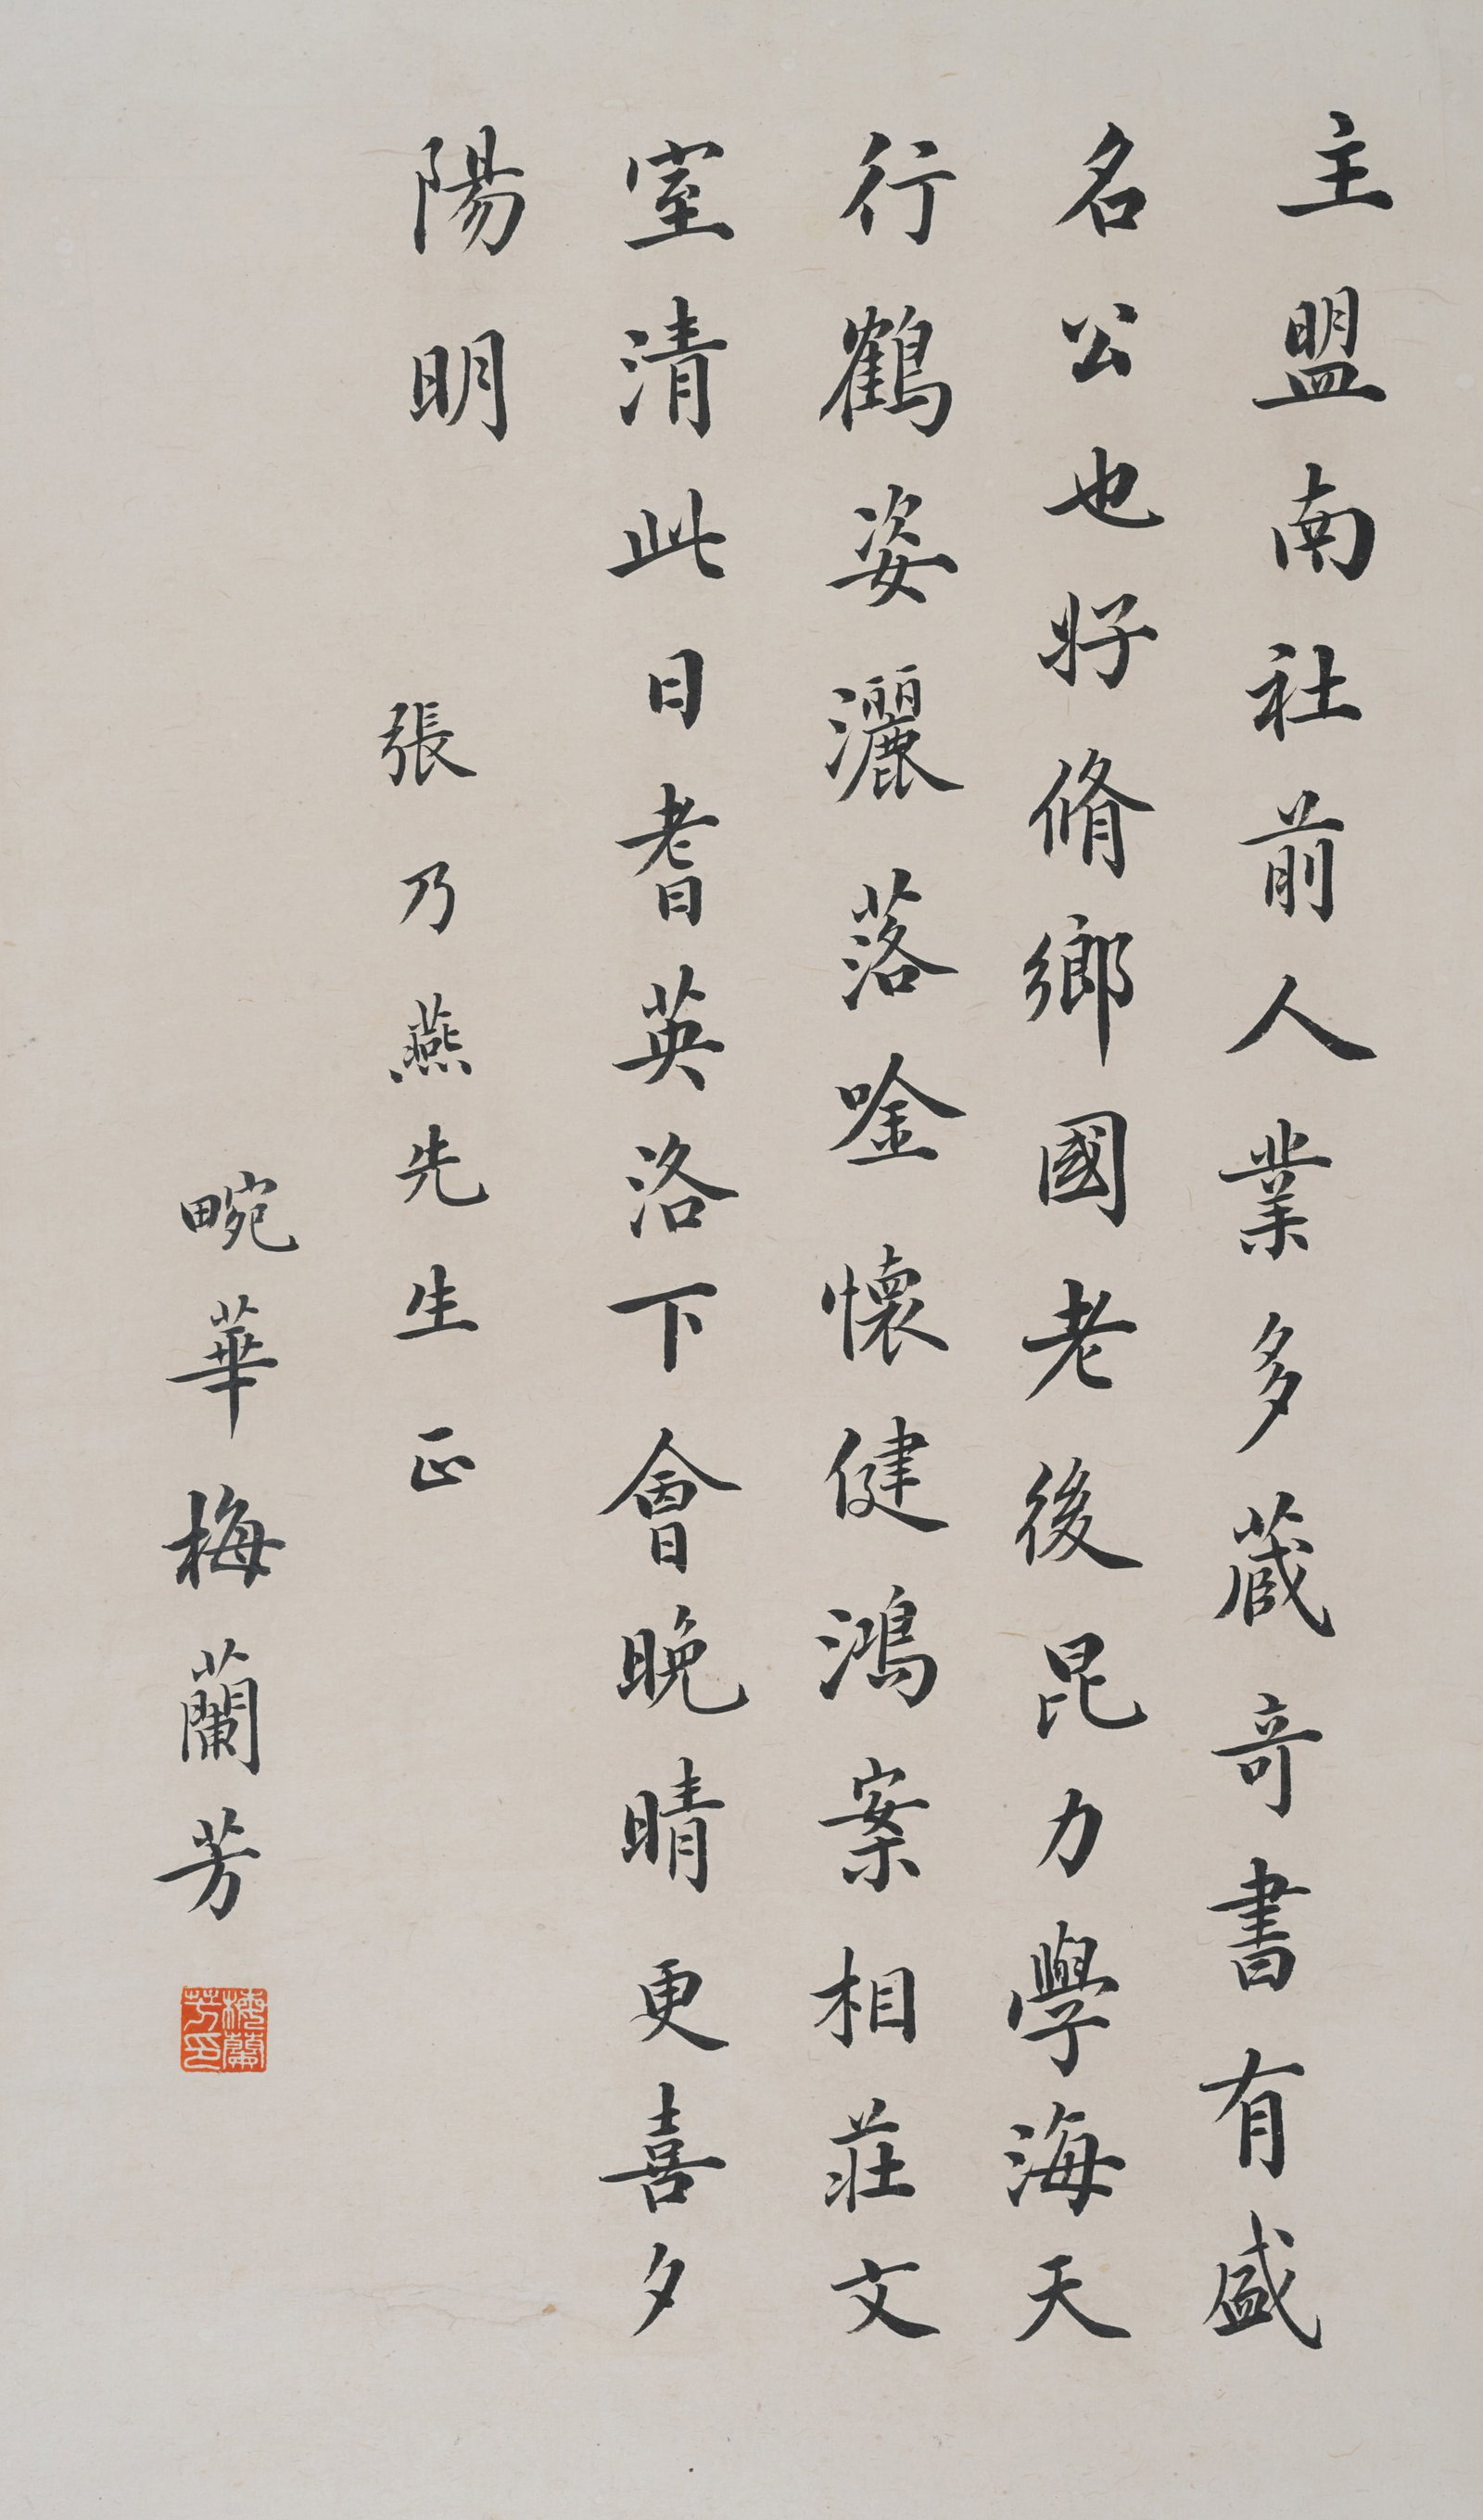 主盟南社前人業多蔵奇書有盛
名公也好脩鄉國老後昆力學海天
行鶴姿灑落唫懷健鴻案相莊文
室清此日耆英洛下會晚晴更喜夕
陽明
張乃燕先生正
畹華梅蘭芳
梅蘭芳印